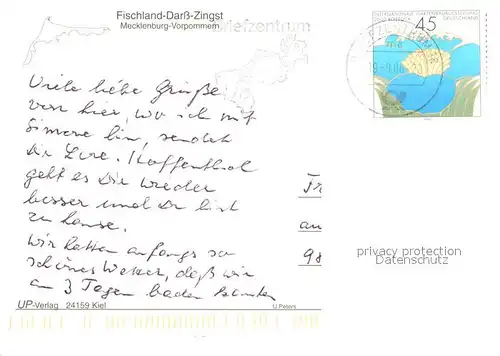 Fischland-Darß-Zingst
Mecklenburg-Vorpommern
Briefzentrum
INTERNATIONALE GARTENBAUAUSSTELLUNG
45
DEUTSCHLAND
Viele liebe Grüße
von hier, wo ich mit
Simone bin, sendet
Dir Lore. Hoffentlich
geht es Dir wieder
besser und Du bist
zu Hause.
Wir hatten anfangs so
schönes Wetter, daß wir
an 3 Tagen baden konnten
Fr
an
98
privacy protection
Datenschutz
UP-Verlag 24159 Kiel
U.Peters